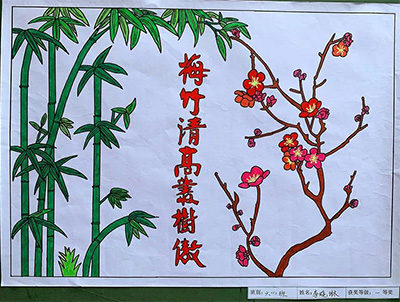 梅竹清高叢樹傲
班级: 大(2)班 姓名: 获奖等级: 一等奖